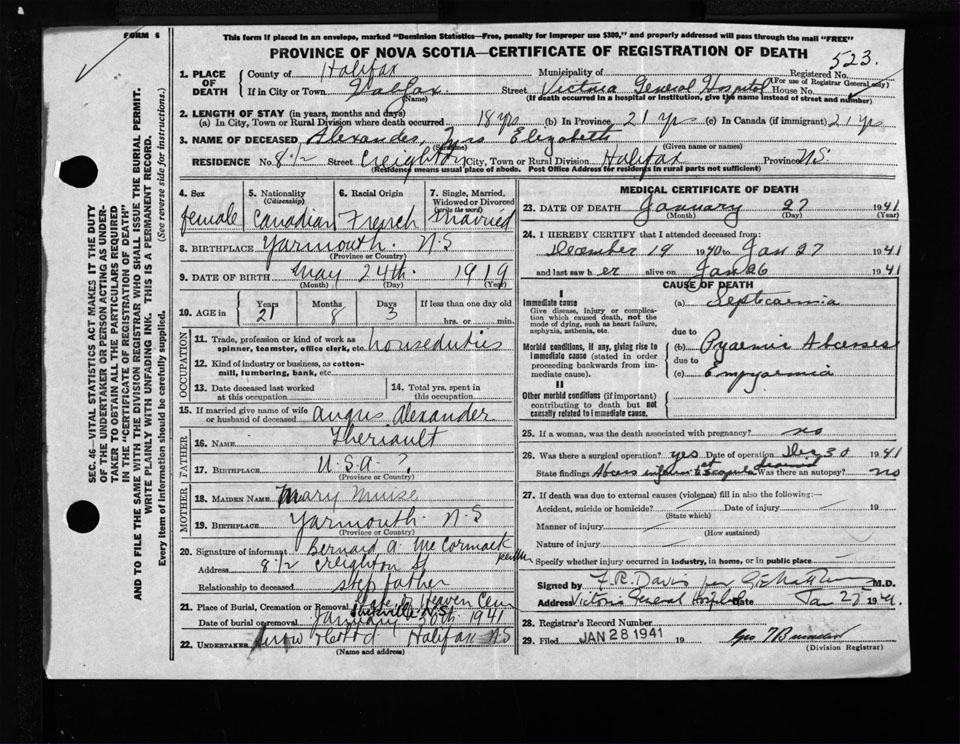 FORM 6
This form if placed in an envelope, marked "Dominion Statistics—Free, penalty for improper use $300," and properly addressed will pass through the mail "FREE"
PROVINCE OF NOVA SCOTIA—CERTIFICATE OF REGISTRATION OF DEATH
523.
SEC. 46—VITAL STATISTICS ACT MAKES IT THE DUTY
OF THE UNDERTAKER OR PERSON ACTING AS UNDER-
TAKER TO OBTAIN ALL THE PARTICULARS REQUIRED
IN THE "CERTIFICATE OF REGISTRATION OF DEATH"
AND TO FILE THE SAME WITH THE DIVISION REGISTRAR WHO SHALL ISSUE THE BURIAL PERMIT.
WRITE PLAINLY WITH UNFADING INK. THIS IS A PERMANENT RECORD.
Every item of information should be carefully supplied. (See reverse side for instructions.)
1. PLACE OF DEATH
County of Halifax Municipality of Registered No.
(For use of Registrar General only)
If in City or Town Halifax Street Victoria General Hospital House No.
(Name) (If death occurred in a hospital or institution, give the name instead of street and number)
2. LENGTH OF STAY (in years, months and days)
(a) In City, Town or Rural Division where death occurred 18 yrs (b) In Province 21 yrs (c) In Canada (if immigrant) 21 yrs
3. NAME OF DECEASED Alexander, Elizabeth
(Surname) (Given name or names)
RESIDENCE No. 8½ Street Creighton City, Town or Rural Division Halifax Province N.S.
(Residence means usual place of abode. Post Office Address for residents in rural parts not sufficient)
4. Sex female
5. Nationality (Citizenship) Canadian
6. Racial Origin French
7. Single, Married, Widowed or Divorced (write the word) Married
8. BIRTHPLACE Yarmouth. N.S
(Province or Country)
9. DATE OF BIRTH May 24th. 1919
(Month) (Day) (Year)
10. AGE in Years 21 Months 8 Days 3 If less than one day old hrs. or min.
OCCUPATION
11. Trade, profession or kind of work as spinner, teamster, office clerk, etc. houseduties
12. Kind of industry or business, as cotton-mill, lumbering, bank, etc.
13. Date deceased last worked at this occupation
14. Total yrs. spent in this occupation
15. If married give name of wife or husband of deceased Angus Alexander
FATHER
16. NAME Theriault
17. BIRTHPLACE U.S.A. ?
(Province or Country)
MOTHER
18. MAIDEN NAME Mary Muise
19. BIRTHPLACE Yarmouth N.S
(Province or Country)
20. Signature of informant Bernard A. McCormack
Address 8½ Creighton St
Relationship to deceased step father
21. Place of Burial, Cremation or Removal Heaven Cem
Sackville N.S.
Date of burial or removal January 30th 1941
22. UNDERTAKER Snow Halifax NS
(Name and address)
MEDICAL CERTIFICATE OF DEATH
23. DATE OF DEATH January 27 1941
(Month) (Day) (Year)
24. I HEREBY CERTIFY that I attended deceased from:
December 19 1940 to Jan 27 1941
and last saw her alive on Jan 26 1941
CAUSE OF DEATH
I
Immediate cause
Give disease, injury or complication which caused death, not the mode of dying, such as heart failure, asphyxia, asthenia, etc.
(a) Septicaemia
due to
Morbid conditions, if any, giving rise to immediate cause (stated in order proceeding backwards from immediate cause).
(b) Pyaemic Abcesses
due to
(c) Empyaemia
II
Other morbid conditions (if important) contributing to death but not causally related to immediate cause.
25. If a woman, was the death associated with pregnancy? no
26. Was there a surgical operation? yes Date of operation 30 1941
State findings Abcess Was there an autopsy? no
27. If death was due to external causes (violence) fill in also the following:—
Accident, suicide or homicide? Date of injury 19
(State which)
Manner of injury
(How sustained)
Nature of injury
Specify whether injury occurred in industry, in home, or in public place
Signed by F. R. Davis per M.D.
Address Victoria General Hospital Date Jan 27 1941
28. Registrar's Record Number
29. Filed JAN 28 1941 19
(Division Registrar)